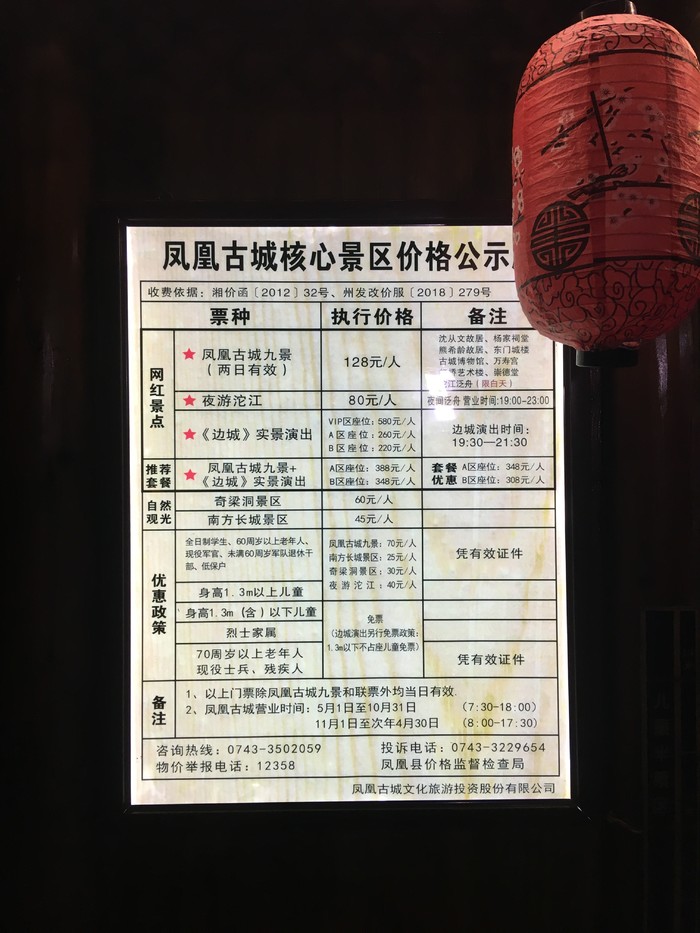 凤凰古城核心景区价格公示
收费依据：湘价函〔2012〕32号、州发改价服〔2018〕279号
票种 执行价格 备注
网红景点
★ 凤凰古城九景
（两日有效）
128元/人
沈从文故居、杨家祠堂
熊希龄故居、东门城楼
古城博物馆、万寿宫
艺术楼、崇德堂
江泛舟（限白天）
★ 夜游沱江 80元/人 夜间泛舟 营业时间:19:00-23:00
★《边城》实景演出
VIP区座位：580元/人
A区座位：260元/人
B区座位：220元/人
边城演出时间：
19:30—21:30
推荐套餐
★ 凤凰古城九景+
《边城》实景演出
A区座位：388元/人
B区座位：348元/人
套餐优惠
A区座位：348元/人
B区座位：308元/人
自然观光
奇梁洞景区 60元/人
南方长城景区 45元/人
优惠政策
全日制学生、60周岁以上老年人、
现役军官、未满60周岁军队退休干
部、低保户
身高1.3m以上儿童
凤凰古城九景：70元/人
南方长城景区：25元/人
奇梁洞景区：30元/人
夜游沱江：40元/人
凭有效证件
身高1.3m（含）以下儿童
烈士家属
70周岁以上老年人
现役士兵、残疾人
免票
（边城演出另行免票政策：
1.3m以下不占座儿童免票）
凭有效证件
备注
1、以上门票除凤凰古城九景和联票外均当日有效.
2、凤凰古城营业时间：5月1日至10月31日 （7:30-18:00）
11月1日至次年4月30日 （8:00-17:30）
咨询热线：0743-3502059 投诉电话：0743-3229654
物价举报电话：12358 凤凰县价格监督检查局
凤凰古城文化旅游投资股份有限公司